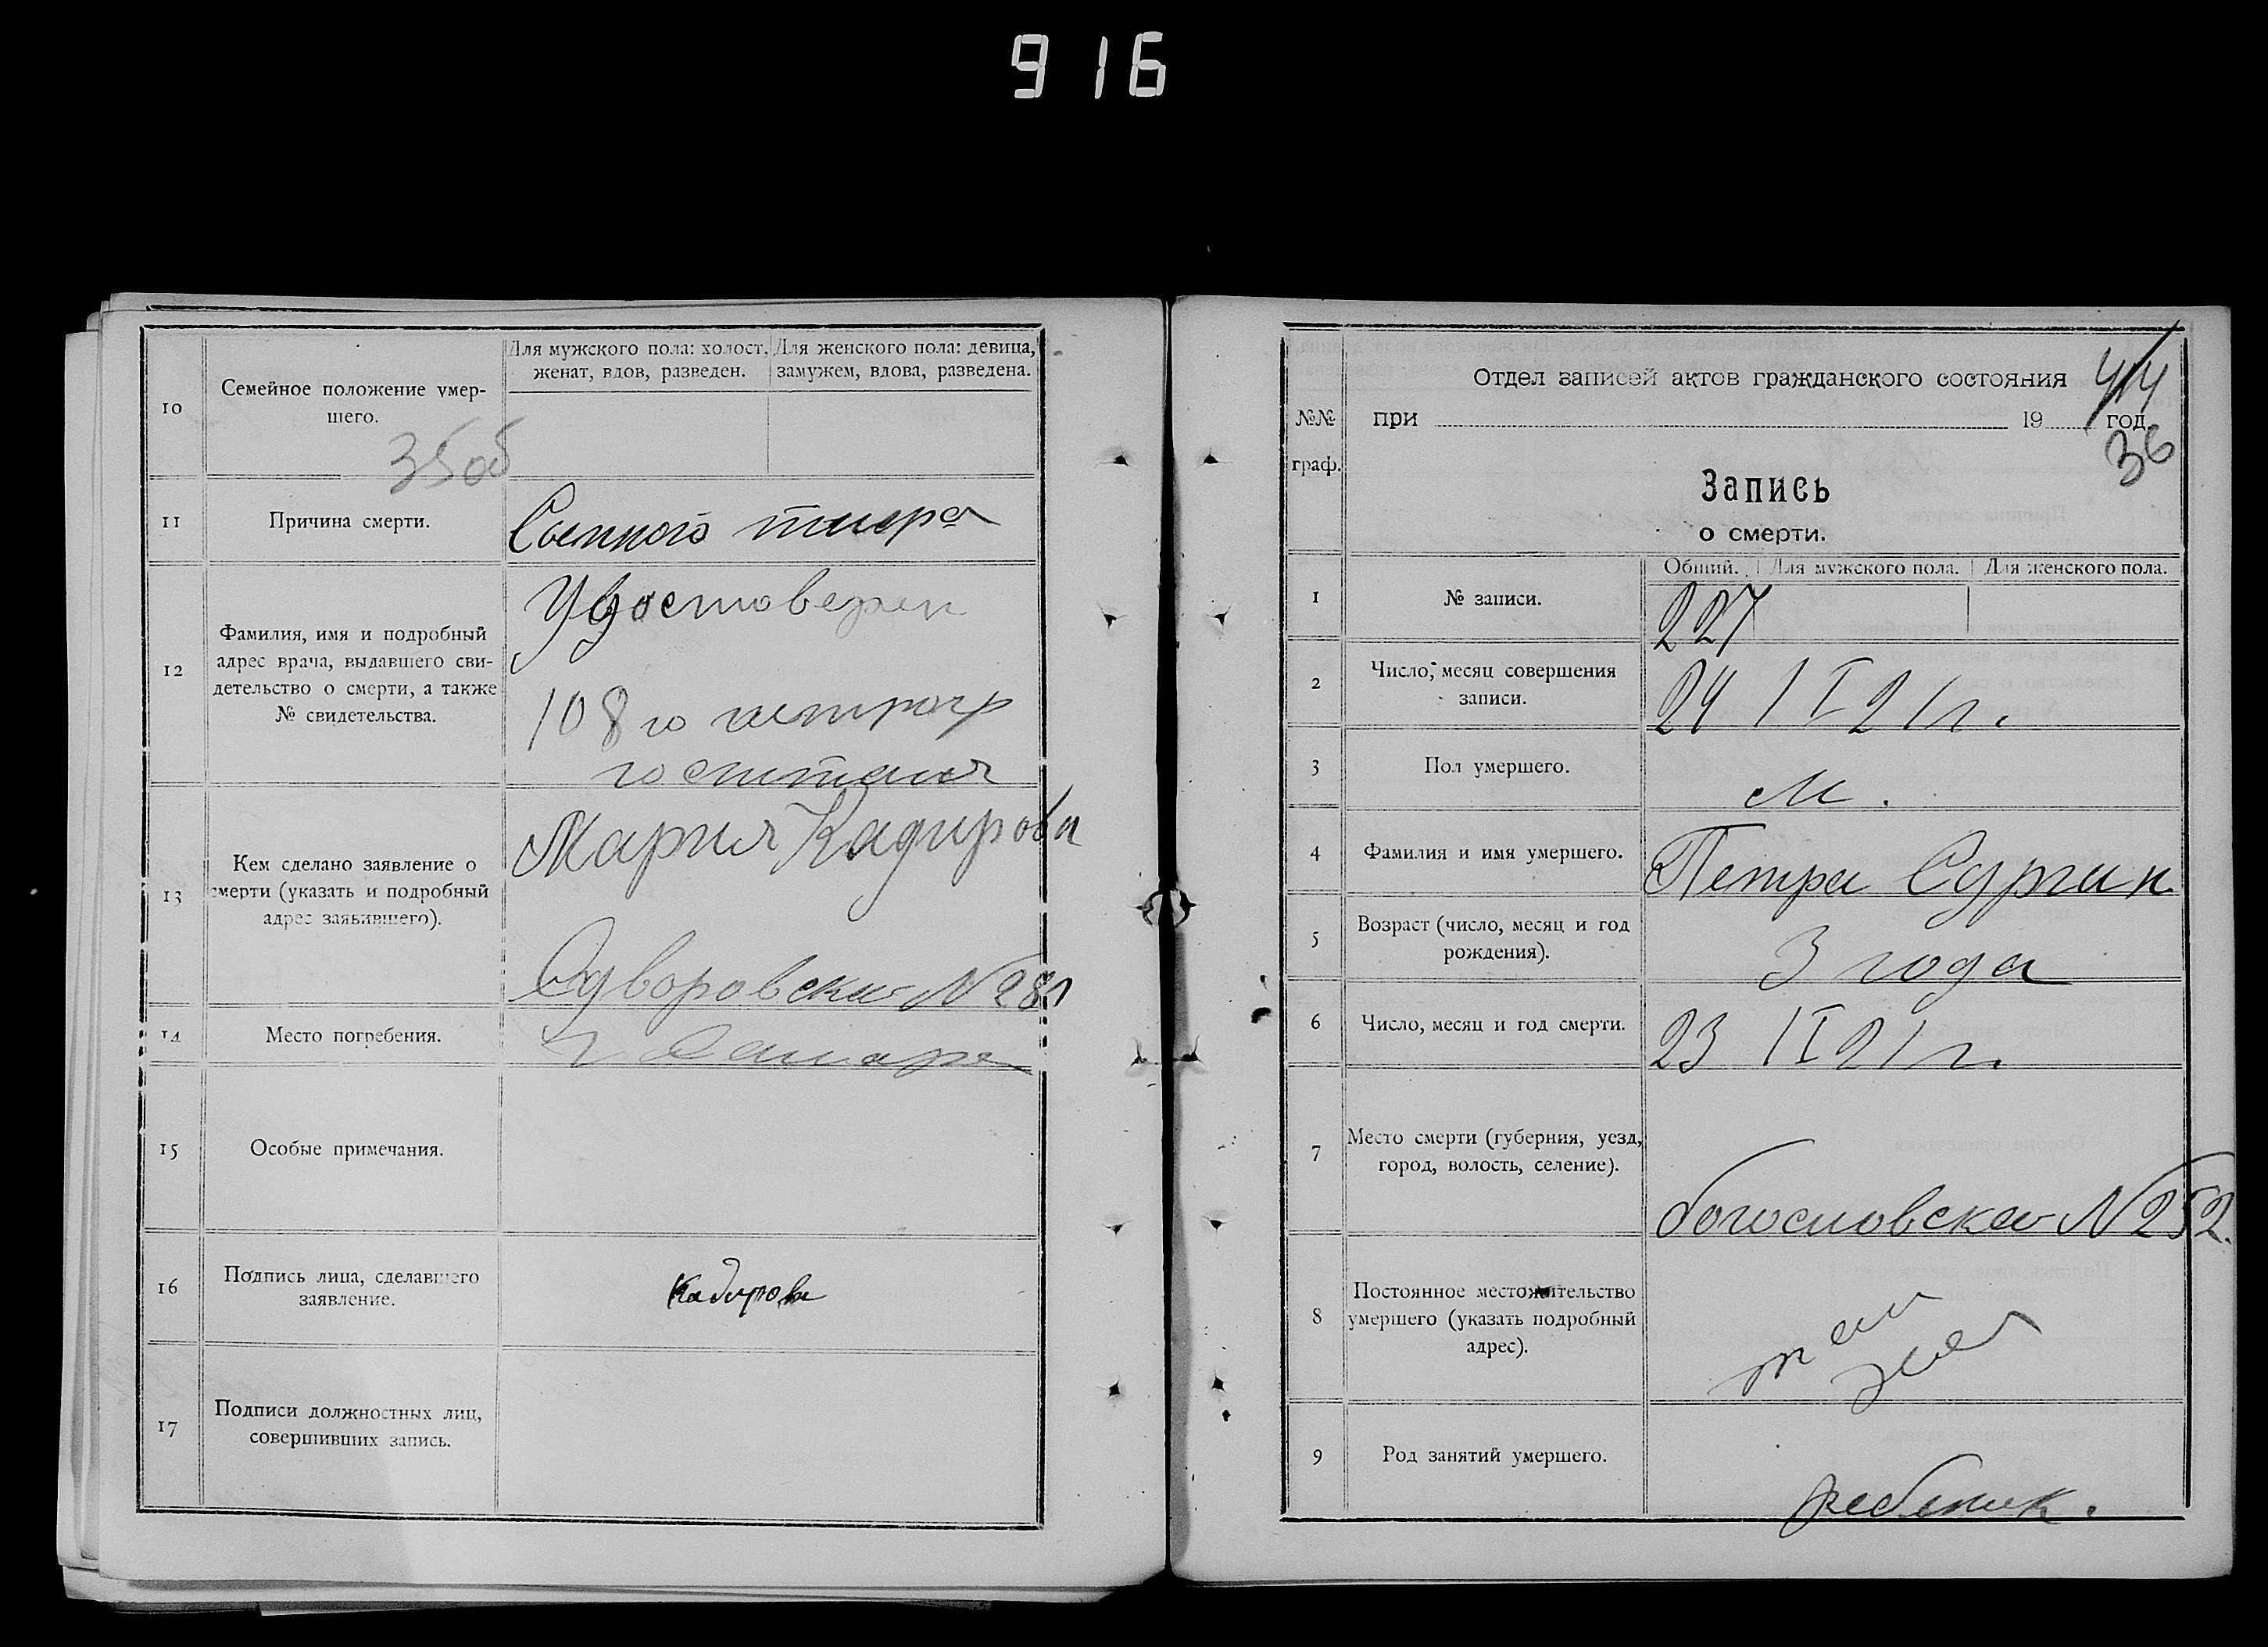 916
10
Семейное положение умер-
шего.
Для мужского пола: холост,
женат, вдов, разведен.
Для женского пола: девица,
замужем, вдова, разведена.
35об
11
Причина смерти.
Сыпного тифа
12
Фамилия, имя и подробный
адрес врача, выдавшего сви-
детельство о смерти, а также
№ свидетельства.
Удостоверен
108 го
госпиталя
13
Кем сделано заявление о
смерти (указать и подробный
адрес заявившего).
Мария Кадирова
14
Место погребения.
г Самара
15
Особые примечания.
16
Подпись лица, сделавшего
заявление.
Кадирова
17
Подписи должностных лиц,
совершивших запись.
№№
граф.
Отдел записей актов гражданского состояния
при 19 год.
44
36
Запись
о смерти.
Общий. Для мужского пола. Для женского пола.
1
№ записи.
227
2
Число, месяц совершения
записи.
24 / I 21 г.
3
Пол умершего.
м.
4
Фамилия и имя умершего.
Петра
5
Возраст (число, месяц и год
рождения).
3 года
6
Число, месяц и год смерти.
23 / I 21 г.
7
Место смерти (губерния, уезд,
город, волость, селение).
богословская N 252.
8
Постоянное местожительство
умершего (указать подробный
адрес).
там
же
9
Род занятий умершего.
ребенок.